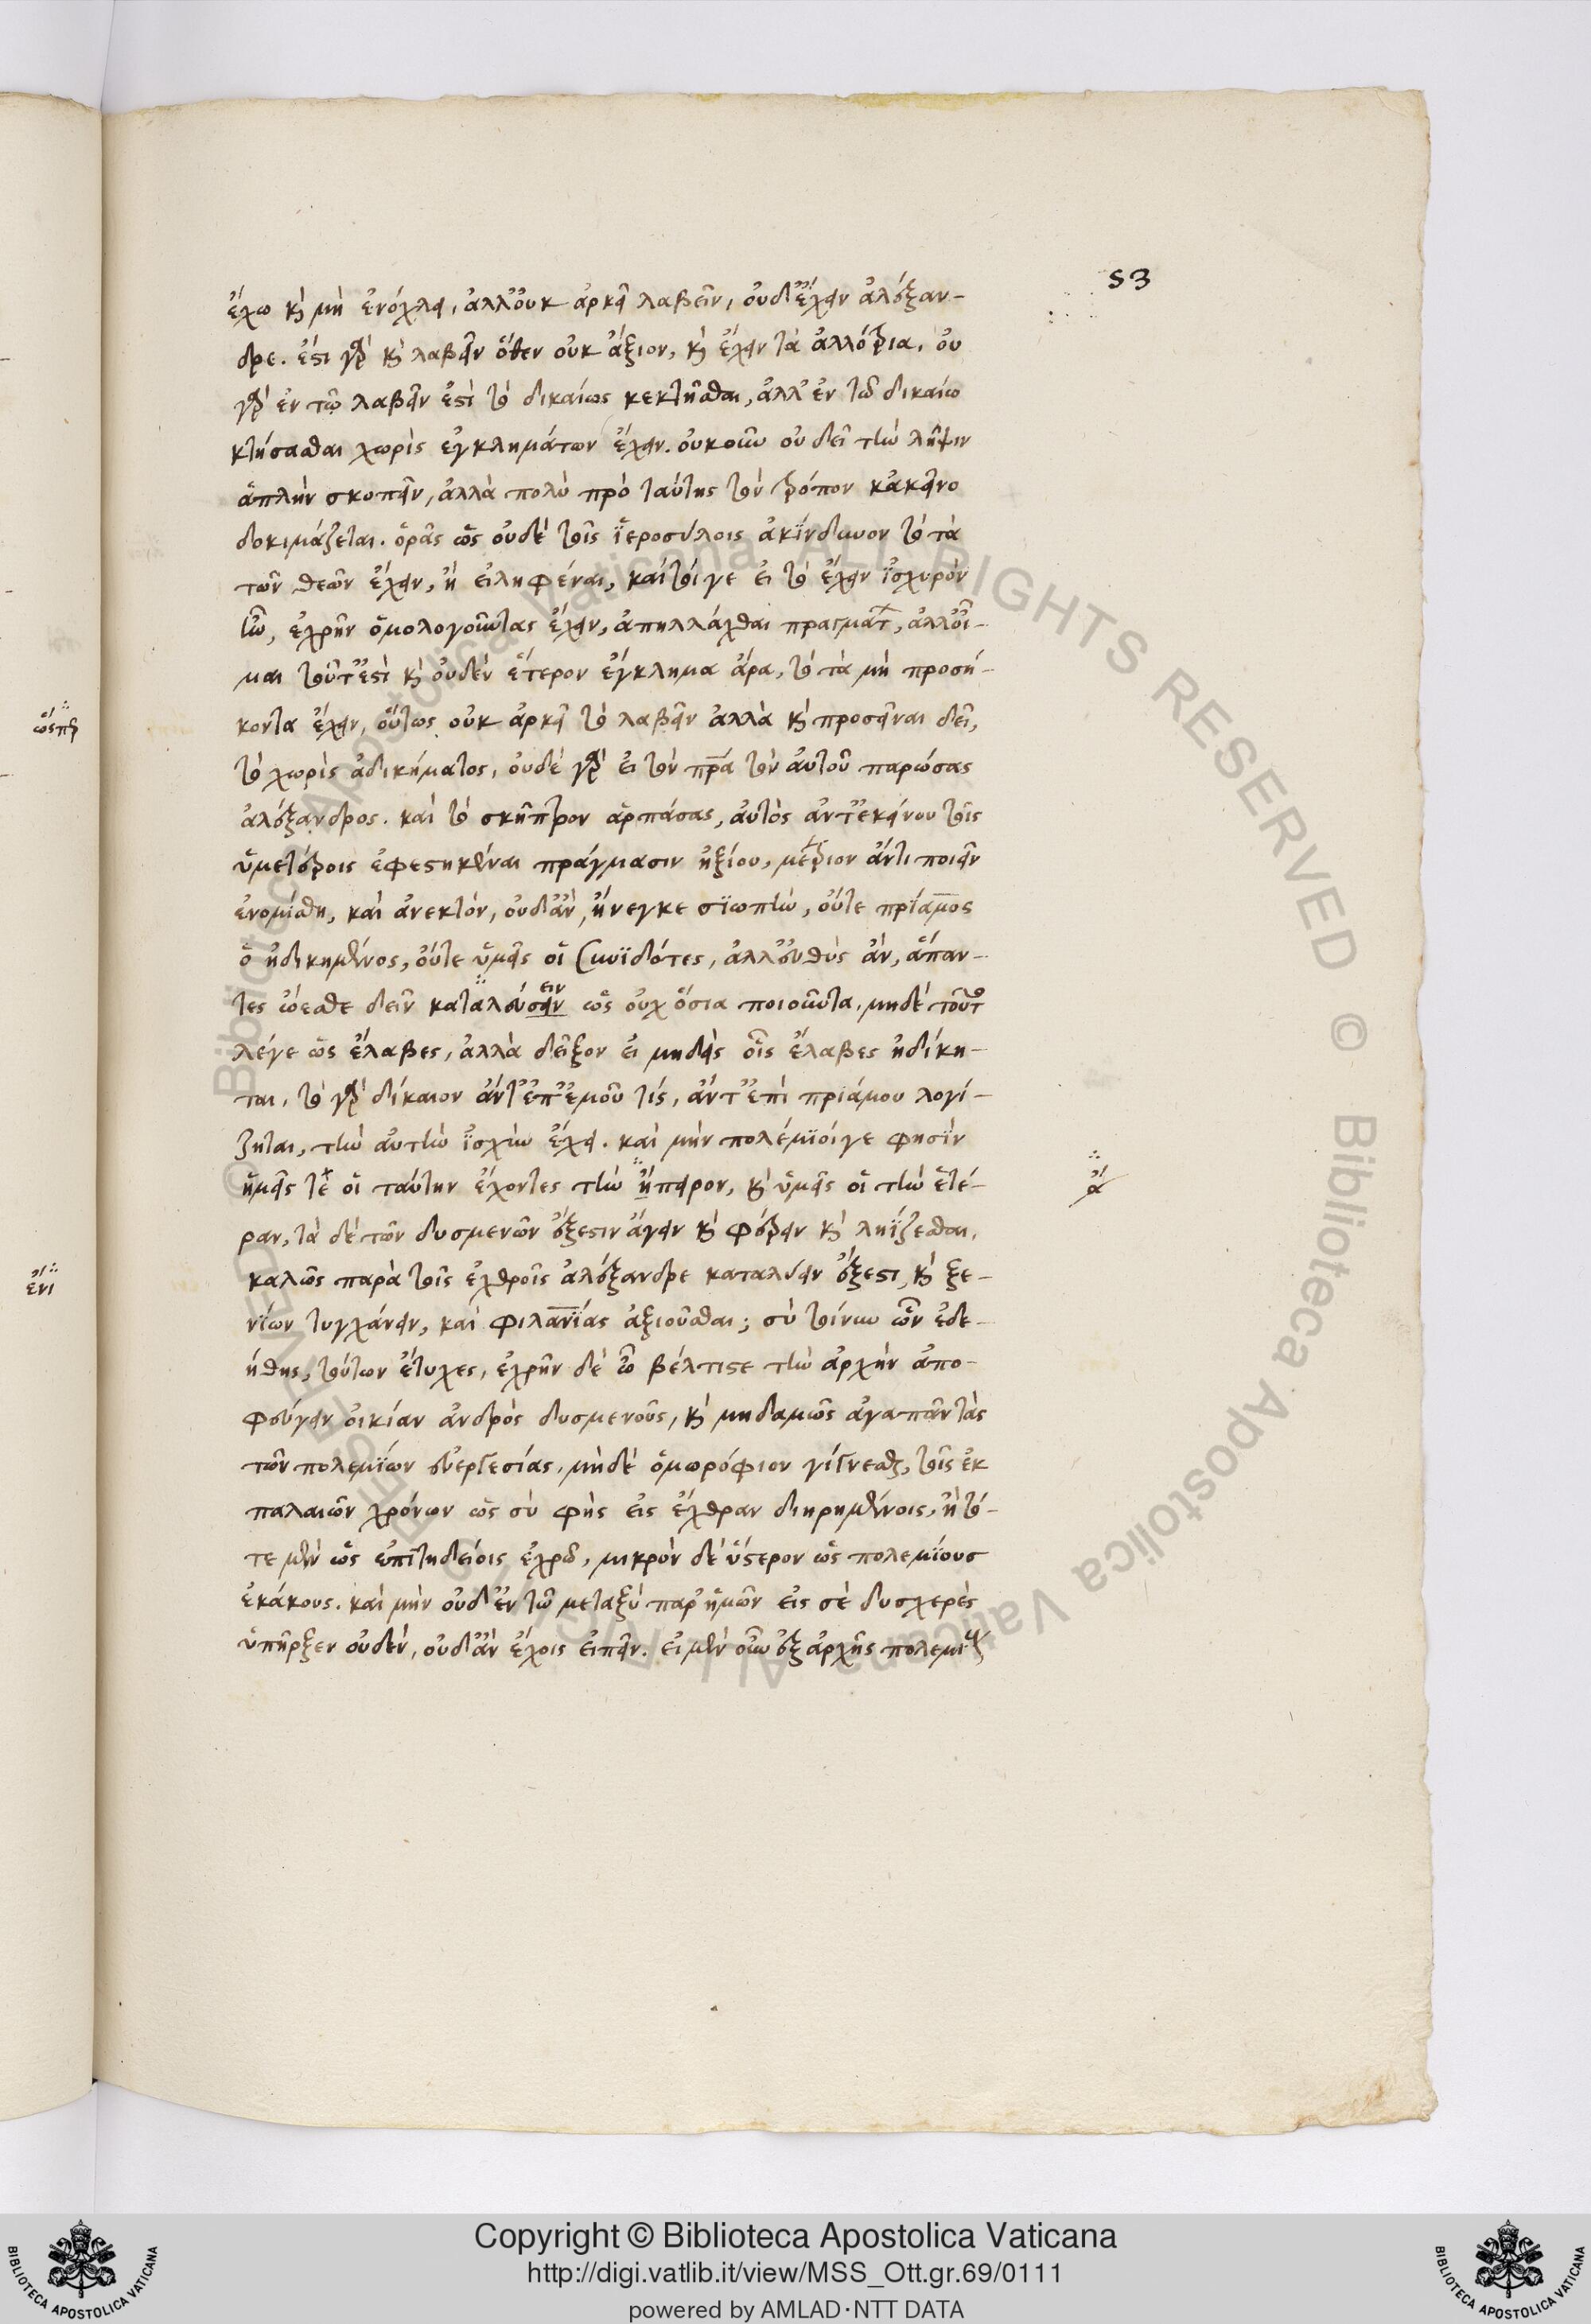 53
ἔχω καὶ μὴ ἐνόχλει, ἀλλ' οὐκ ἀρκεῖ λαβεῖν, οὐδ' ἔχειν ἀλέξαν-
δρε. ἔστι γὰρ καὶ λαβεῖν ὅθεν οὐκ ἄξιον, καὶ ἔχειν τὰ ἀλλότρια, οὐ
γὰρ ἐν τῷ λαβεῖν ἐστὶ τὸ δικαίως κεκτῆσθαι, ἀλλ' ἐν τῶ δικαίω
κτήσασθαι χωρὶς ἐγκλημάτων ἔχειν. οὐκοῦν οὐ δεῖ τὴν λῆψιν
ἁπλὴν σκοπεῖν, ἀλλὰ πολὺ πρὸ ταύτης τὸν τρόπον κἀκεῖνο
δοκιμάζεται. ὁρᾶς ὡς οὐδὲ τοῖς ἱεροσύλοις ἀκίνδυνον τὸ τὰ
τῶν θεῶν ἔχειν, ἢ εἰληφέναι, καίτοι γε εἰ τὸ ἔχειν ἰσχυρὸν
ἦν, ἐχρῆν ὁμολογοῦντας ἔχειν, ἀπηλλάχθαι πραγμάτ, ἀλλ' οἶ-
μαι τοῦτ' ἐστὶ καὶ οὐδὲν ἕτερον ἔγκλημα ἄρα, τὸ τὰ μὴ προσή-
κοντα ἔχειν, οὕτως οὐκ ἀρκεῖ τὸ λαβεῖν ἀλλὰ καὶ προσεῖναι δεῖ,
τὸ χωρὶς ἀδικήματος, οὐδὲ γὰρ εἰ τὸν πρα τὸν αὐτοῦ παρώσας
ἀλέξανδρος. καὶ τὸ σκῆπτρον ἁρπάσας, αὐτὸς ἀντ' ἐκείνου τοῖς
ὑμετέροις ἐφεστηκέναι πράγμασιν ἠξίου, μέτριον ἄν τι ποιεῖν
ἐνομίσθη, καὶ ἀνεκτόν, οὐδ' ἂν, ἤνεγκε σιωπῆ, οὔτε πρίαμος
ὁ ἠδικημένος, οὔτε ὑμεῖς οἱ συνϊδότες, ἀλλ' εὐθὺς ἂν, ἅπαν-
τες ᾤεσθε δεῖν καταλεύσειν ειν ὡς οὐχ ὅσια ποιοῦντα. μηδὲ τοῦτο
λέγε ὡς ἔλαβες, ἀλλὰ δεῖξον εἰ μηδεὶς οἷς ἔλαβες ἠδίκη-
ται, τὸ γὰρ δίκαιον ἄν τ' ἐπ' ἐμοῦ τίς, ἄν τ' ἐπὶ πριάμου λογί-
ζηται, τὴν αὐτὴν ἰσχὺν ἔχει. καὶ μὴν πολέμιοί γε φησὶν
ἡμεῖς τὲ οἱ ταύτην ἔχοντες τὴν ἤπειρον, καὶ ὑμεῖς οἱ τὴν ἑτέ-
ραν, τὰ δὲ τῶν δυσμενῶν ἔξεστιν ἄγειν καὶ φέρειν καὶ ληΐζεσθαι,
καλῶς παρὰ τοῖς ἐχθροῖς ἀλέξανδρε καταλύειν ἔξεστι, καὶ ξε-
νίων τυγχάνειν, καὶ φιλανΐας ἀξιοῦσθαι; σὺ τοίνυν ὧν ἐδε-
ήθης, τούτων ἔτυχες, ἐχρῆν δὲ ὦ βέλτιστε τὴν ἀρχὴν ἀπο-
φεύγειν οἰκίαν ἀνδρὸς δυσμενοῦς, καὶ μηδαμῶς ἀγαπᾶν τὰς
τῶν πολεμίων εὐεργεσίας, μηδὲ ὁμωρόφιον γίγνεσθαι, τοῖς ἐκ
παλαιῶν χρόνων ὡς σὺ φὴς εἰς ἔχθραν διηρημένοις, ἢ τό-
τε μὲν ὡς ἐπιτηδείοις ἐχρῶ, μικρὸν δὲ ὕστερον ὡς πολεμίους
ἐκάκους. καὶ μὴν οὐδ' ἐν τῶ μεταξὺ παρ' ἡμῶν εἰς σὲ δυσχερὲς
ὑπῆρξεν οὐδέν, οὐδ' ἂν ἔχοις εἰπεῖν. εἰ μὲν οὖν ἐξ ἀρχῆς πολεμι
ὥσπερ
ἔνι
Copyright © Biblioteca Apostolica Vaticana
http://digi.vatlib.it/view/MSS_Ott.gr.69/0111
powered by AMLAD·NTT DATA